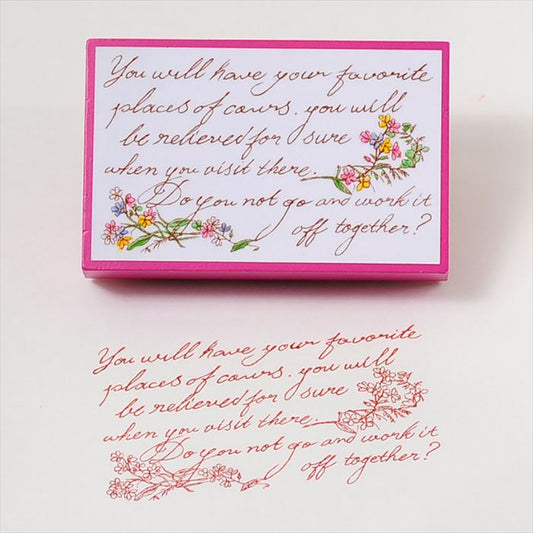 You will have your favorite
places of cours. you will
be relieved for sure
when you visit there.
Do you not go and work it
off together?
You will have your favorite
places of cours. you will
be relieved for sure
when you visit there.
Do you not go and work it
off together?